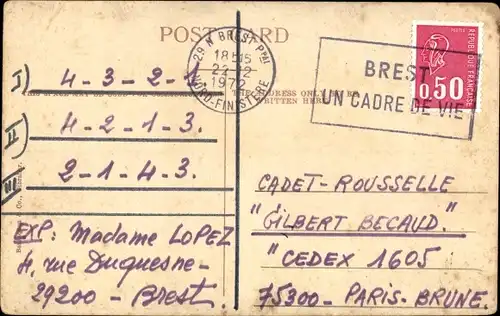 POSTCARD
29 N BREST PPAL
18H15
22-2
1972
NORD-FINISTERE
BREST
UN CADRE DE VIE
POSTES
REPUBLIQUE FRANÇAISE
0,50
ADDRESS ONLY
WRITTEN HERE
I) 4-3-2-1
II) 4-2-1-3.
III) 2-1-4-3.
EXP: Madame LOPEZ
4, rue Duquesne-
29200-Brest.
CADET-ROUSSELLE
"GILBERT BECAUD."
"CEDEX 1605
75300-PARIS-BRUNE.